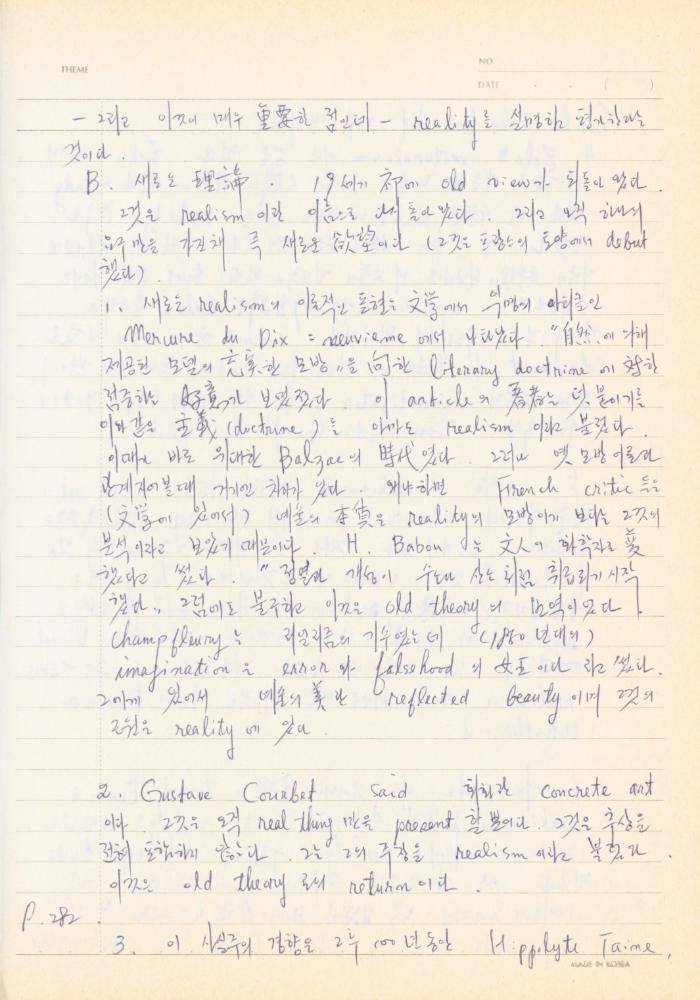 THEME
NO.
DATE . . ( )
- 그리고 이것이 매우 重要한 점인데 - reality를 설명하고 평가한다는
것이다.
B. 새로운 理論. 19세기 初에 old view가 되돌아 왔다.
그것은 realism 이란 이름으로 되돌아 왔다. 그리고 오직 하나의
요구만을 가진채 즉 새로운 欲望이다 (그것은 프랑스의 토양에서 debut
했다).
1. 새로운 realism의 이론적인 표현은 文學에서 무명의 아티클인
Mercure du Dix = neuvieme 에서 나타났다 "自然에 의해
제공된 모델의 充実한 모방"을 向한 literary doctrine에 対한
점증하는 好意가 보였졌다 이 article의 著者는 덧붙이기를
이와같은 主義(doctrine)를 아마도 realism 이라고 불렀다.
이때는 바로 위대한 Balzac의 時代였다. 그러나 옛 모방이론과
관계지어볼때 거기엔 차이가 있다. 왜냐하면 French critic 들은
(文學에 있어서) 예술의 本質은 reality의 모방이기 보다는 그것의
분석이라고 보았기 때문이다. H. Babou 는 文人이 화학자로 変
했다고 썼다. "정열과 개성이 수소나 산소처럼 취급되기 시작
했다" 그럼에도 불구하고 이것은 old theory의 모역이었다!
Champfleury는 리얼리즘의 기수였는데 (1850년대의)
imagination은 error와 falsehood의 女王이다 라고 썼다.
그에게 있어서 예술의 美란 reflected beauty이며 그것의
근원은 reality에 있다.
2. Gustave Courbet said 회화란 concrete art
이다 그것은 오직 real thing 만을 present 할뿐이다. 그것은 추상을
전혀 포함하지 않는다. 그는 그의 주장을 realism 이라고 불렀다.
이것은 old theory 로의 return이다.
P. 282.
3. 이 사실주의 경향은 그후 100년동안 Hippolyte Taine,
MADE IN KOREA